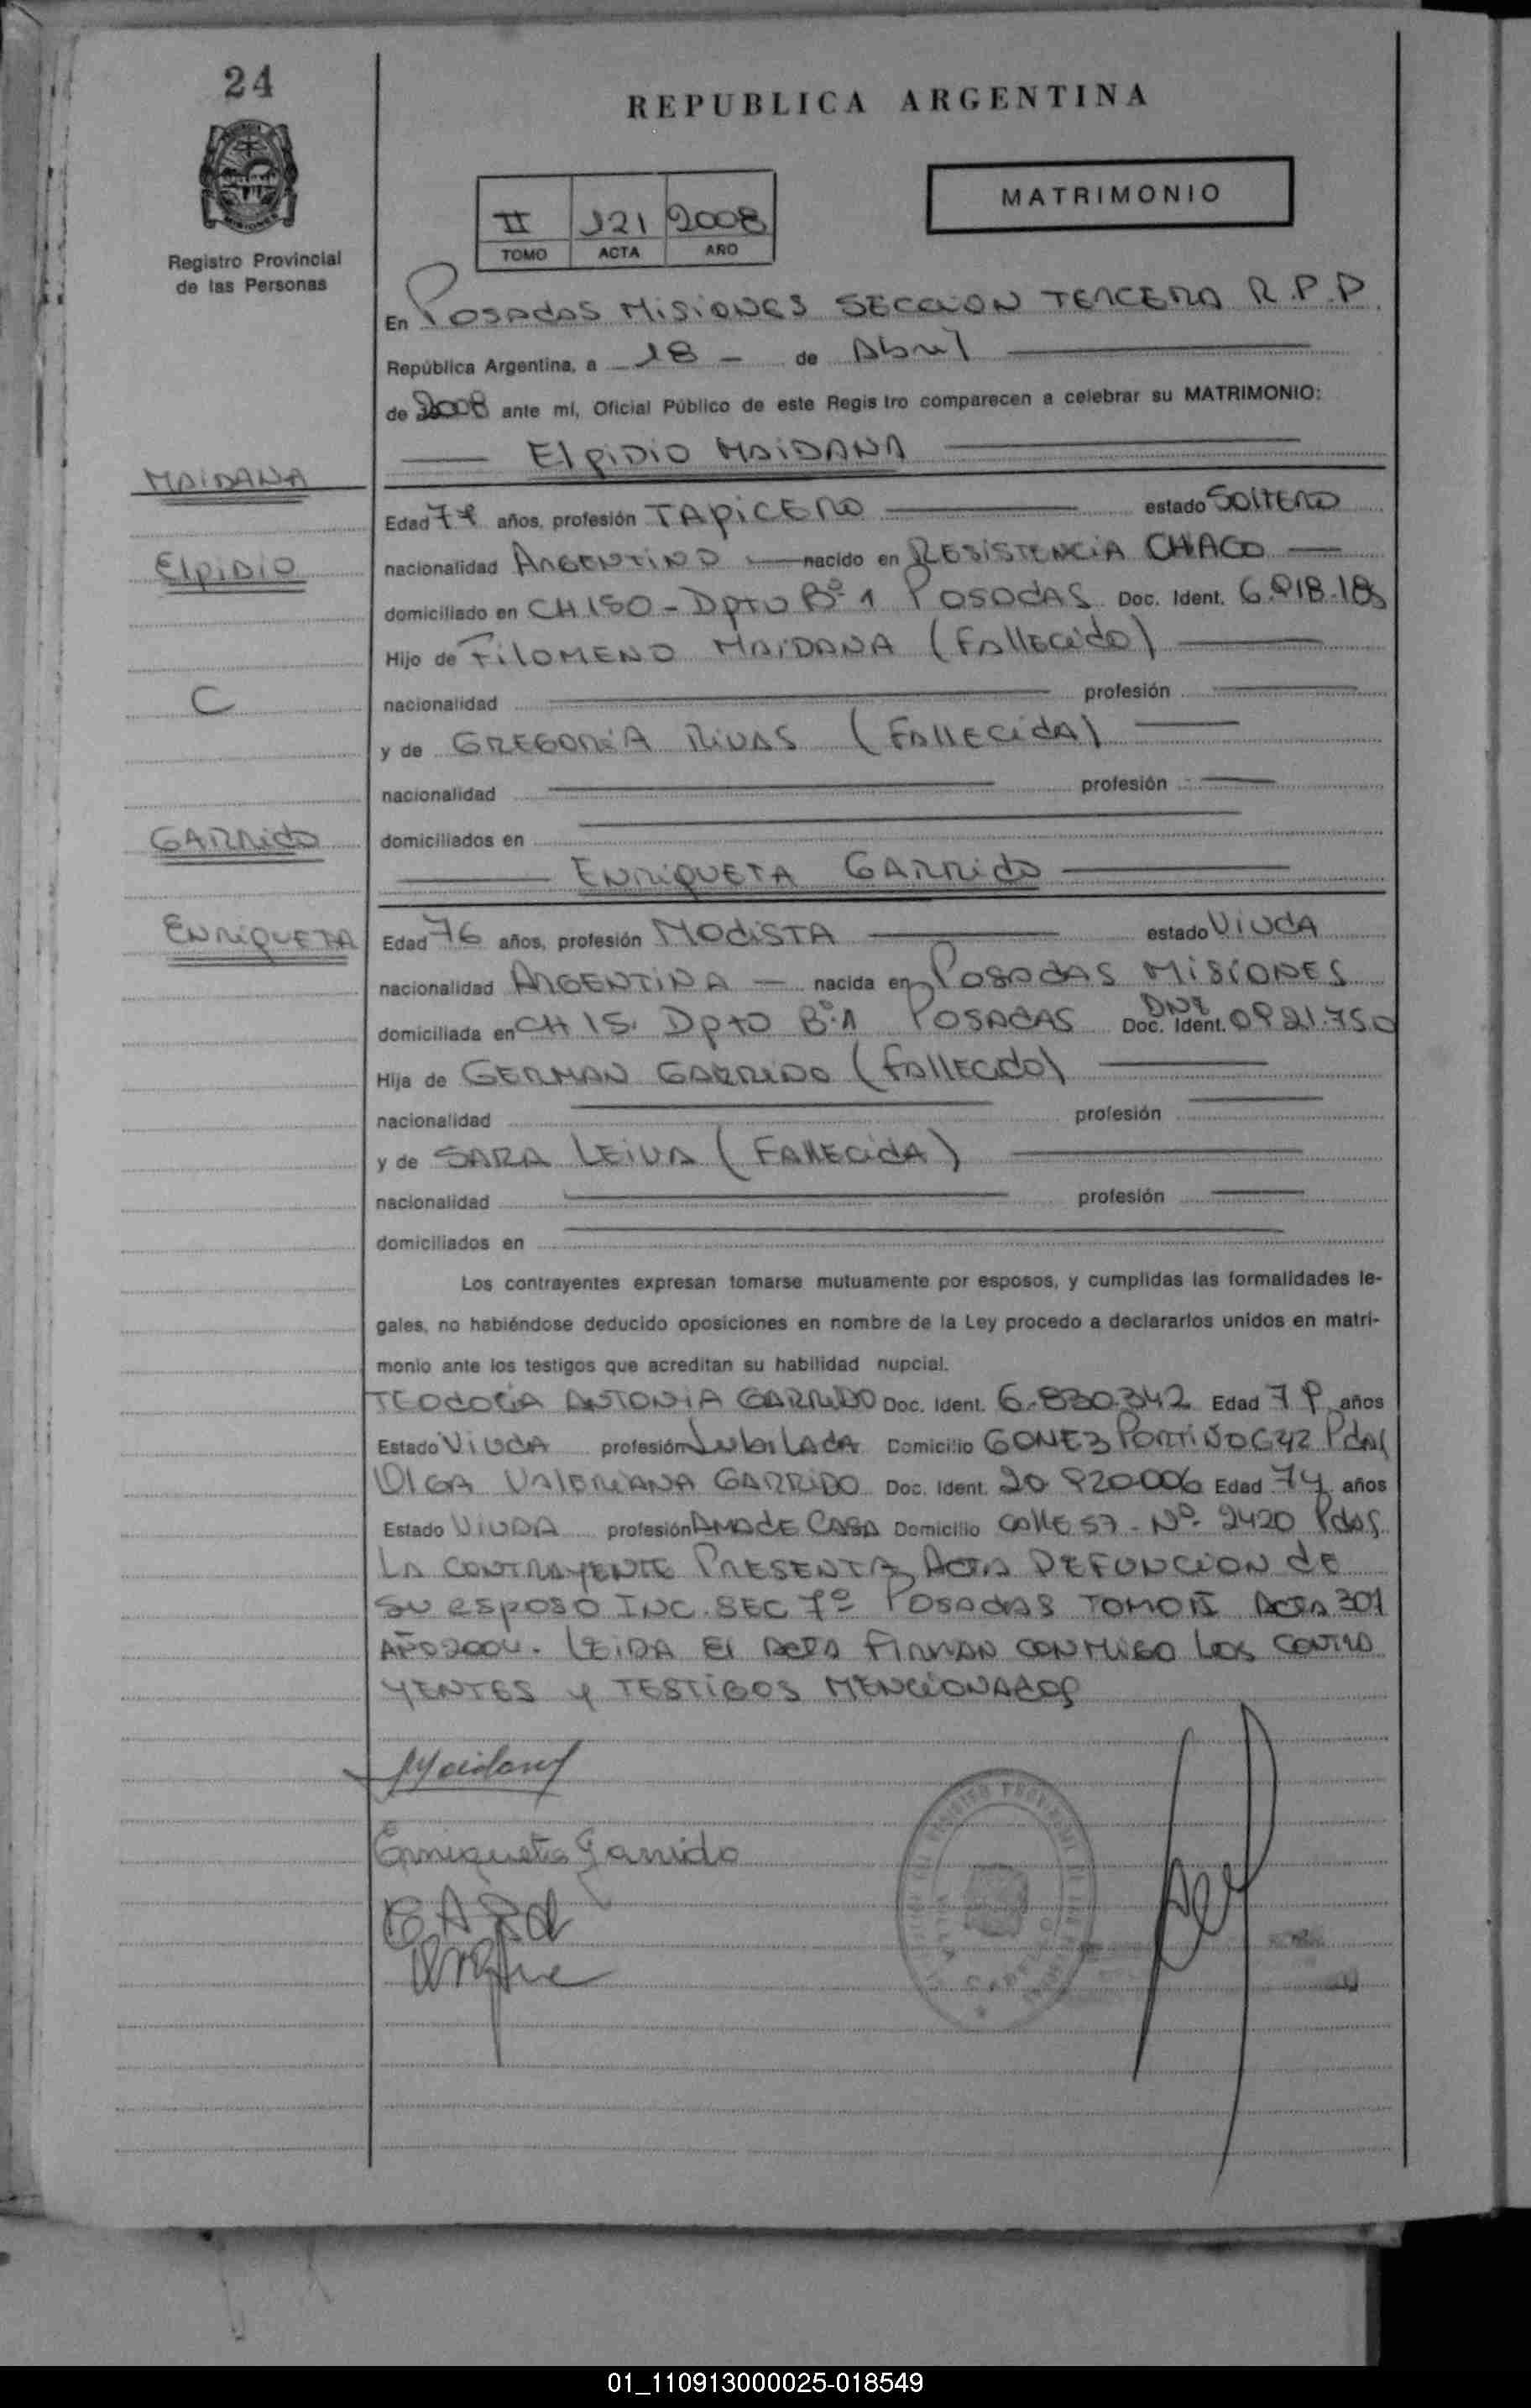 24
REPUBLICA ARGENTINA
MATRIMONIO
II 121 2008
TOMO ACTA AÑO
Registro Provincial
de las Personas
En POSADAS MISIONES SECCION TERCERA R.P.P.
República Argentina, a 18 - de Abril
de 2008 ante mí, Oficial Público de este Regis tro comparecen a celebrar su MATRIMONIO:
ElpiDiO MAiDANA
MAIDANA
Edad años, profesión TApiCERO estado SOlTERO
ElpiDiO
nacionalidad ARGENTINO nacido en RESiSTENCiA CHACO
domiciliado en CH 150 - Dpto Bº 1 POSADAS Doc. Ident.
Hijo de FilOMENO MAiDANA (FAllECido)
C
nacionalidad profesión
y de GREGORiA RiVAS (FAllECidA)
nacionalidad profesión
GARRido
domiciliados en
ENRiQUETA GARRido
ENRiQUETA
Edad 76 años, profesión MOdiSTA estado ViUdA
nacionalidad ARGENTINA nacida en POSADAS MISIONES
domiciliada en CH 15. Dpto Bº 1 POSADAS DNI Doc. Ident.
Hija de GERMAN GARRIDO (FAllECido)
nacionalidad profesión
y de SARA LEiVA (FAllECidA)
nacionalidad profesión
domiciliados en
Los contrayentes expresan tomarse mutuamente por esposos, y cumplidas las formalidades le-
gales, no habiéndose deducido oposiciones en nombre de la Ley procedo a declararlos unidos en matri-
monio ante los testigos que acreditan su habilidad nupcial.
ANTONiA GARRIDO Doc. Ident. 6.830.342 Edad años
Estado ViUdA profesión JubilAdA Domicilio Pdas
OlGA VAlERiANA GARRIDO Doc. Ident. 20 920006 Edad 74 años
Estado ViUDA profesión AMA dE CASA Domicilio CAllE 57 - Nº 2420 Pdas
LA CONTRAYENTE PRESENTA ACTA DEFUNCION dE
SU ESPOSO INC. SEC 7º POSADAS TOMO II ACTA 301
AÑO 2004. LEiDA El ACTA FiRMAN CONMIGO LOS CONTRA
YENTES y TESTiGOS MENCIONADOS
Maidana
Enriqueta Garrido
01_110913000025-018549